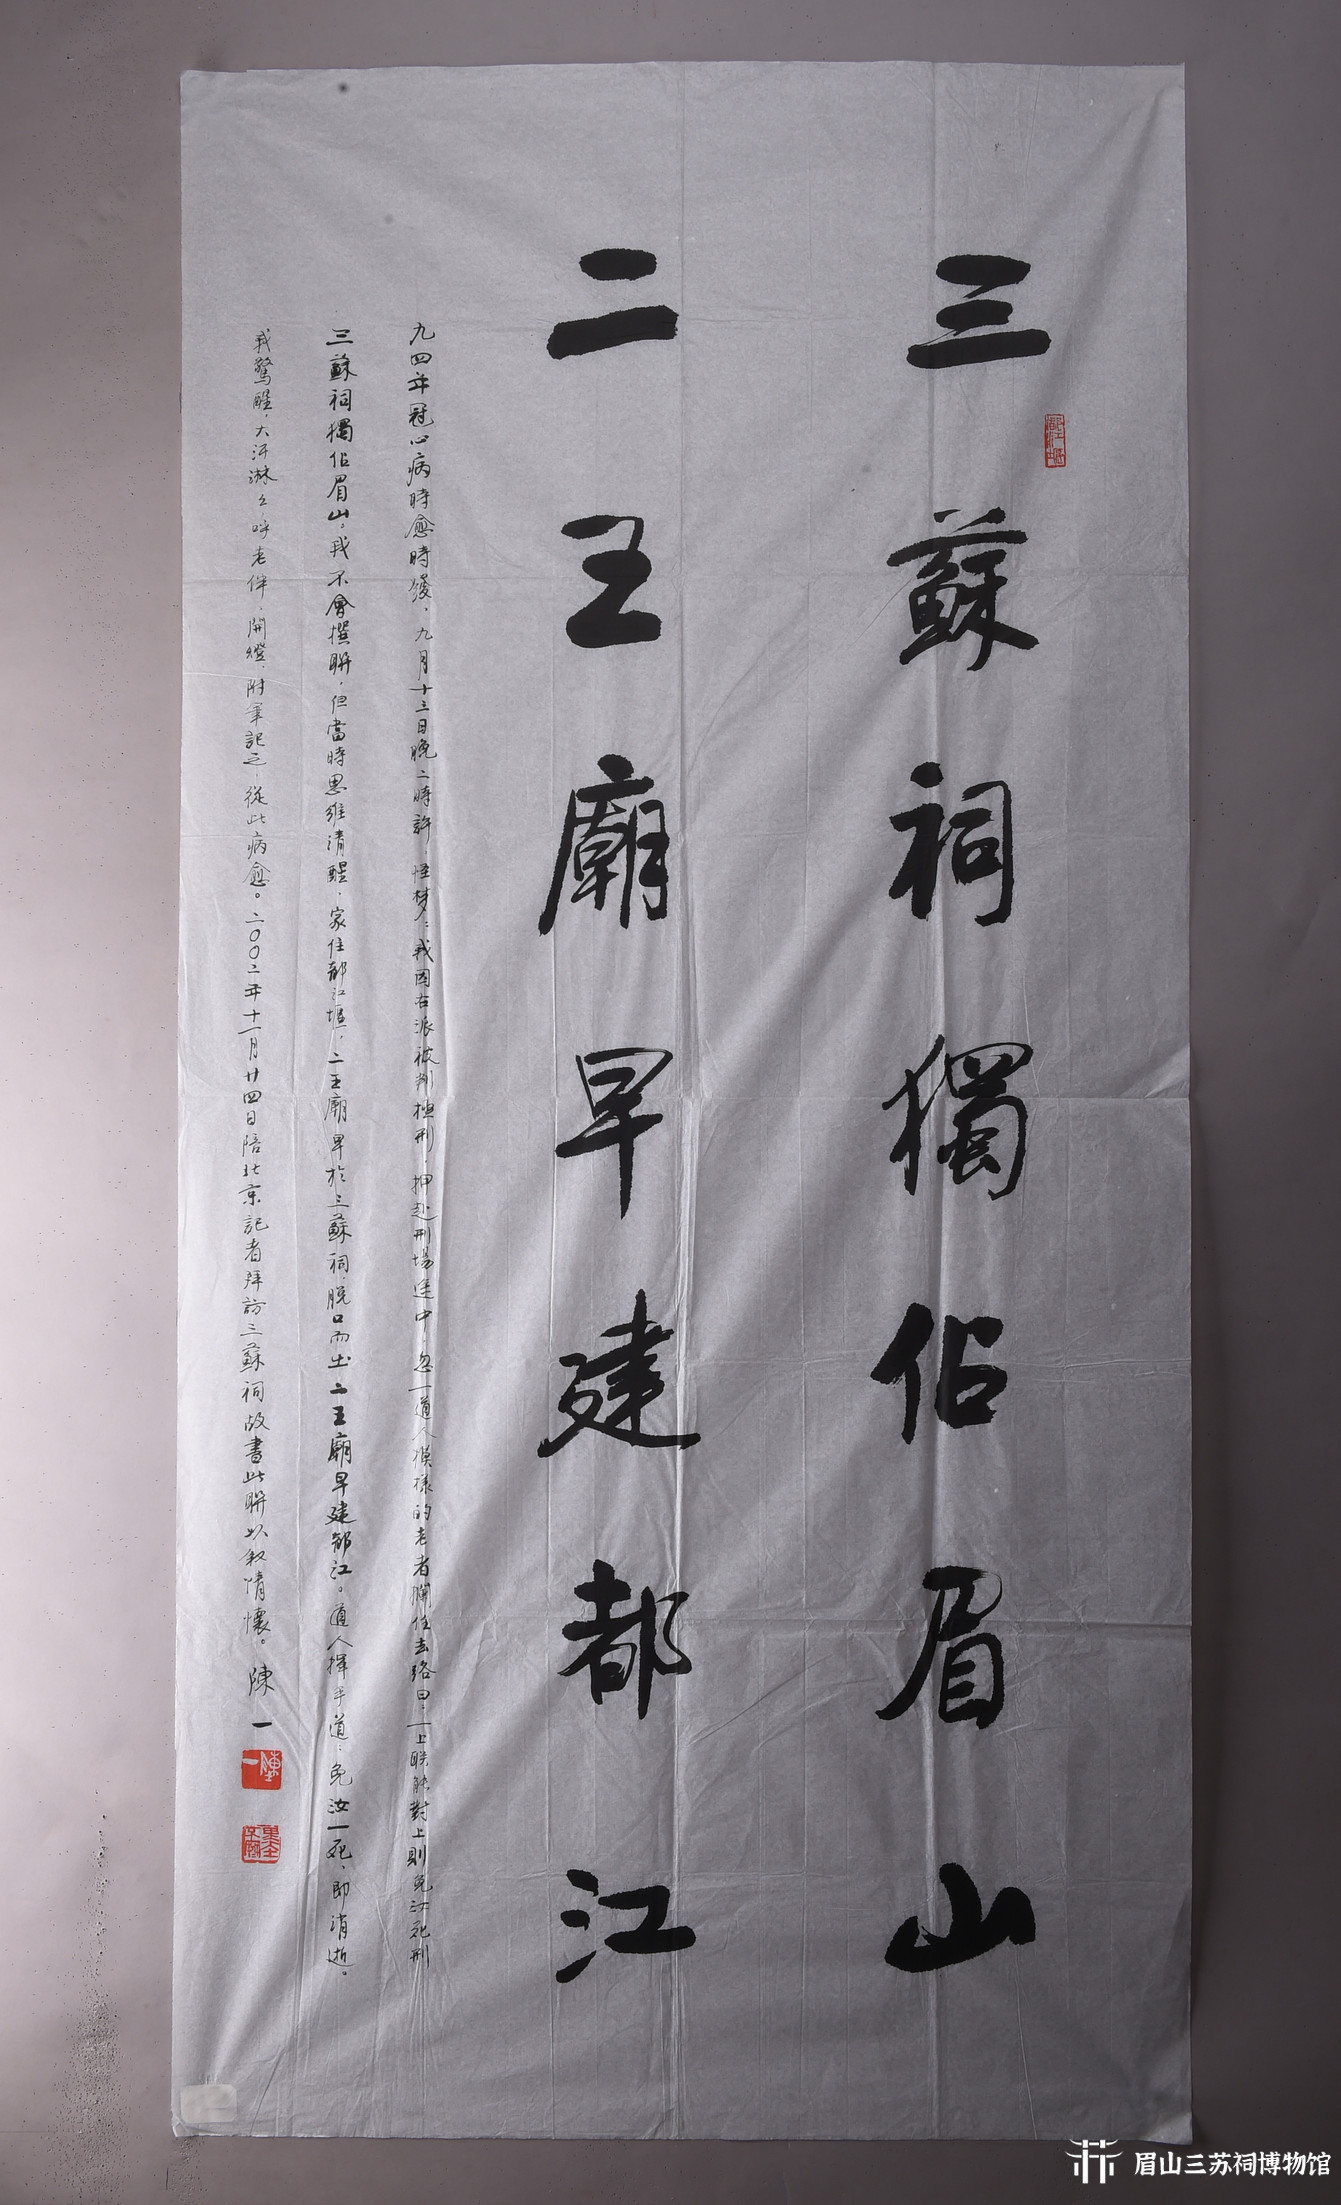 三蘇祠獨佔眉山
二王廟早建都江
九四年冠心病時愈時發，九月十三日晚二時許，怪梦：我因右派被判極刑，押赴刑場途中，忽一道人模樣的老者攔住去路曰：上联能對上則免汝死刑
三蘇祠獨佔眉山。我不會撰联，但當時思維清醒，家住都江堰，二王廟早於三蘇祠，脱口而出二王廟早建都江。道人揮手道：免汝一死，即消逝。
我驚醒，大汗淋々，呼老伴，開燈，附筆記之，從此病愈。二〇〇二年十一月廿四日陪北京記者拜訪三蘇祠故書此联以叙情懷。陳一
都江堰
陳一
眉山三苏祠博物馆